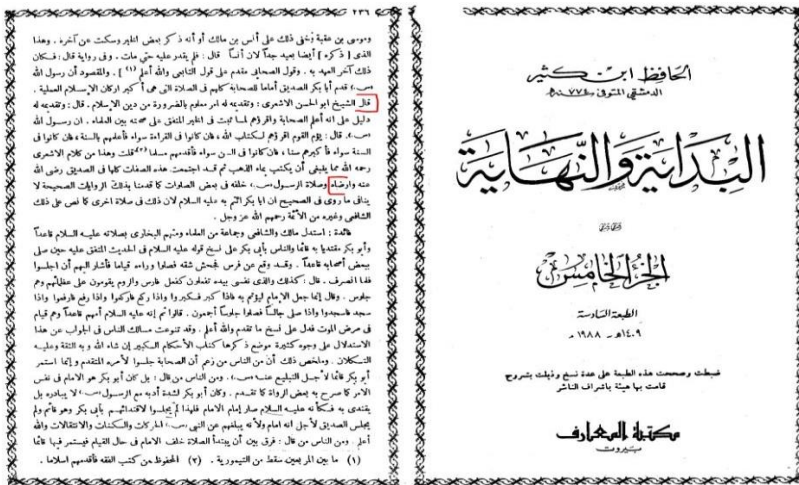 الحافظ ابن كثير
الدمشقي المتوفى ٧٧٤ هـ
البداية والنهاية
الجزء الخامس
الطبعة السادسة
١٤٠٩ هـ - ١٩٨٨ م
ضبطت وصححت هذه الطبعة على عدة نسخ وذيلت بشروح
قامت بها هيئة باشراف الناشر
مكتبة المعارف
بيروت
٢٣٦
وموسى بن عقبة ويخفى ذلك على أنس بن مالك أو أنه ذكر بعض الخبر وسكت عن آخره . وهذا
الذى [ ذكره ] أيضا بعيد جداً لان أنساً قال : فلم يقدر عليه حتى مات . وفى رواية قال : فكان
ذلك آخر العهد به . وقول الصحابى مقدم على قول التابعى والله أعلم (١) ] . والمقصود أن رسول الله
قدم أبا بكر الصديق أماما للصحابة كلهم فى الصلاة التى هى أكبر اركان الإسلام العملية .
قال الشيخ ابو الحسن الاشعرى : وتقديمه له امر معلوم بالضرورة من دين الإسلام . قال : وتقديمه له
دليل على انه أعلم الصحابة واقرؤهم لما ثبت فى الخبر المتفق على صحته بين العلماء . ان رسول الله
قال : يؤم القوم اقرؤهم لكتاب الله ، فان كانوا فى القراءة سواء فأعلمهم بالسنة ، فان كانوا فى
السنة سواء فأكبرهم سنا ، فان كانوا فى السن سواء فأقدمهم مسلما (٢) قلت وهذا من كلام الاشعرى
رحمه الله مما ينبغى أن يكتب بماء الذهب ثم قد اجتمعت هذه الصفات كلها فى الصديق رضى الله
عنه وارضاه وصلاة الرسول خلفه فى بعض الصلوات كما قدمنا بذلك الروايات الصحيحة لا
ينافى ما روى فى الصحيح ان ابا بكر ائتم به عليه السلام لان ذلك فى صلاة اخرى كا نص على ذلك
الشافعى وغيره من الأئمة رحمهم الله عز وجل .
فائدة : استدل مالك والشافعى وجماعة من العلماء ومنهم البخارى بصلاته عليه السلام قاعداً
وأبو بكر مقتديا به قائما والناس بأبى بكر على نسخ قوله عليه السلام فى الحديث المتفق عليه حين صلى
ببعض أصحابه قاعداً . وقد وقع عن فرس فجحش شقه فصلوا وراءه قياما فأشار اليهم أن اجلسوا
فلما انصرف . قال : كذلك والذى نفسى بيده تفعلون كفعل فارس والروم يقومون على عظمائهم وهم
جلوس . وقال إنما جعل الإمام ليؤتم به فاذا كبر فكبروا واذا ركع فاركعوا واذا رفع فارفعوا واذا
سجد فاسجدوا واذا صلى جالساً فصلوا جلوساً أجمعون . قالوا ثم إنه عليه السلام أمهم قاعداً وهم قيام
فى مرض الموت فدل على نسخ ما تقدم والله أعلم . وقد تنوعت مسالك الناس فى الجواب عن هذا
الاستدلال على وجوه كثيرة موضع ذكرها كتاب الأحكام الكبير إن شاء الله وبه الثقة وعليه
التكلان . وملخص ذلك أن من الناس من زعم أن الصحابة جلسوا لأمره المتقدم وإنما استمر
أبو بكر قائما لأجل التبليغ عنه . ومن الناس من قال : بل كان أبو بكر هو الامام فى نفس
الامر كما صرح به بعض الرواة كا تقدم . وكان أبو بكر لشدة أدبه مع الرسول لا يبادره بل
يقتدى به فكأنه عليه السلام صار إمام الامام فلهذا لم يجلسوا لاقتدائهم بأبى بكر وهو قائم ولم
يجلس الصديق لأجل انه امام ولأنه يبلغهم عن النبى الحركات والسكنات والانتقالات والله
أعلم . ومن الناس من قال : فرق بين أن يبتدأ الصلاة خلف الامام فى حال القيام فيستمر فيها قائما
(١) ما بين المربعين سقط من التيمورية . (٢) المحفوظ من كتب الفقه فأقدمهم اسلاما .